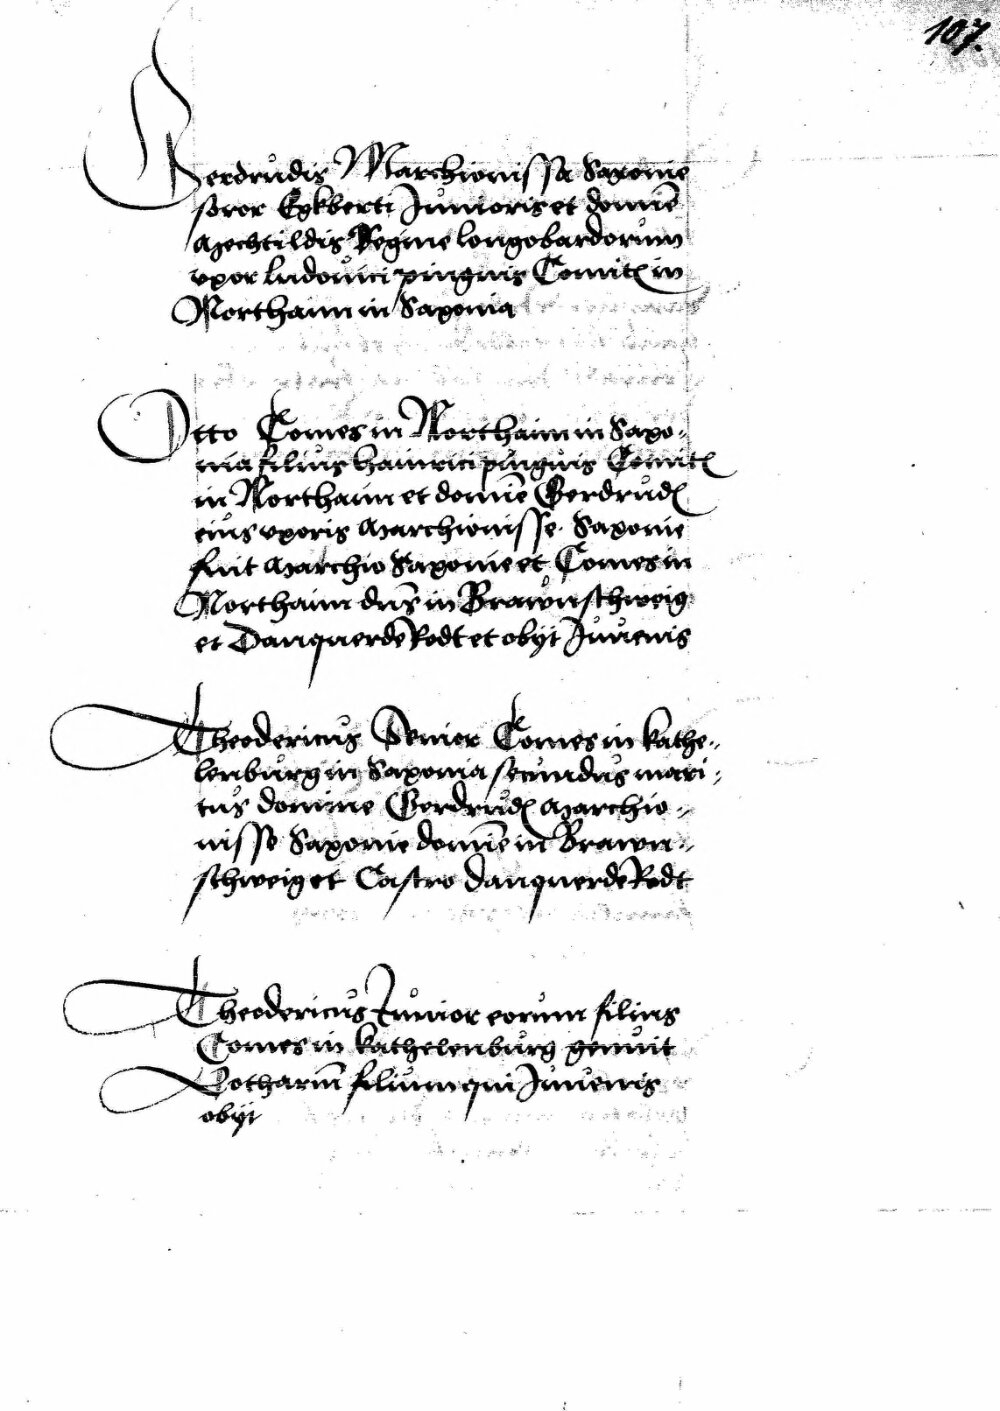 107.
Gerdrudis Marchionissa Saxonie
soror Egkberti Junioris et domnē
Mechtildis Regine longobardorum
vxor ludouici pinguis Comitꝭ in
Northaim in Saxonia
Otto Comes in Northaim in Saxo-
nia filius hainrici pinguis Comitꝭ
in Northaim et domnē Gerdrudꝭ
eius vxoris Marchionisse Saxonie
fuit Marchio Saxonie et Comes in
Northaim dn̄s in Brawnschweig
et DanquerdeRodt et obijt Juuenis
Theodericus Senior Comes in kathe-
lenburg in Saxonia secundus mari-
tus domine Gerdrudꝭ Marchio-
nisse Saxonie domnē in Brawn-
schweig et Castro DanquerdeRodt
Theodericus Junior eorum filius
Comes in kathelenburg genuit
Lothariū filium qui Juuenis
obijt